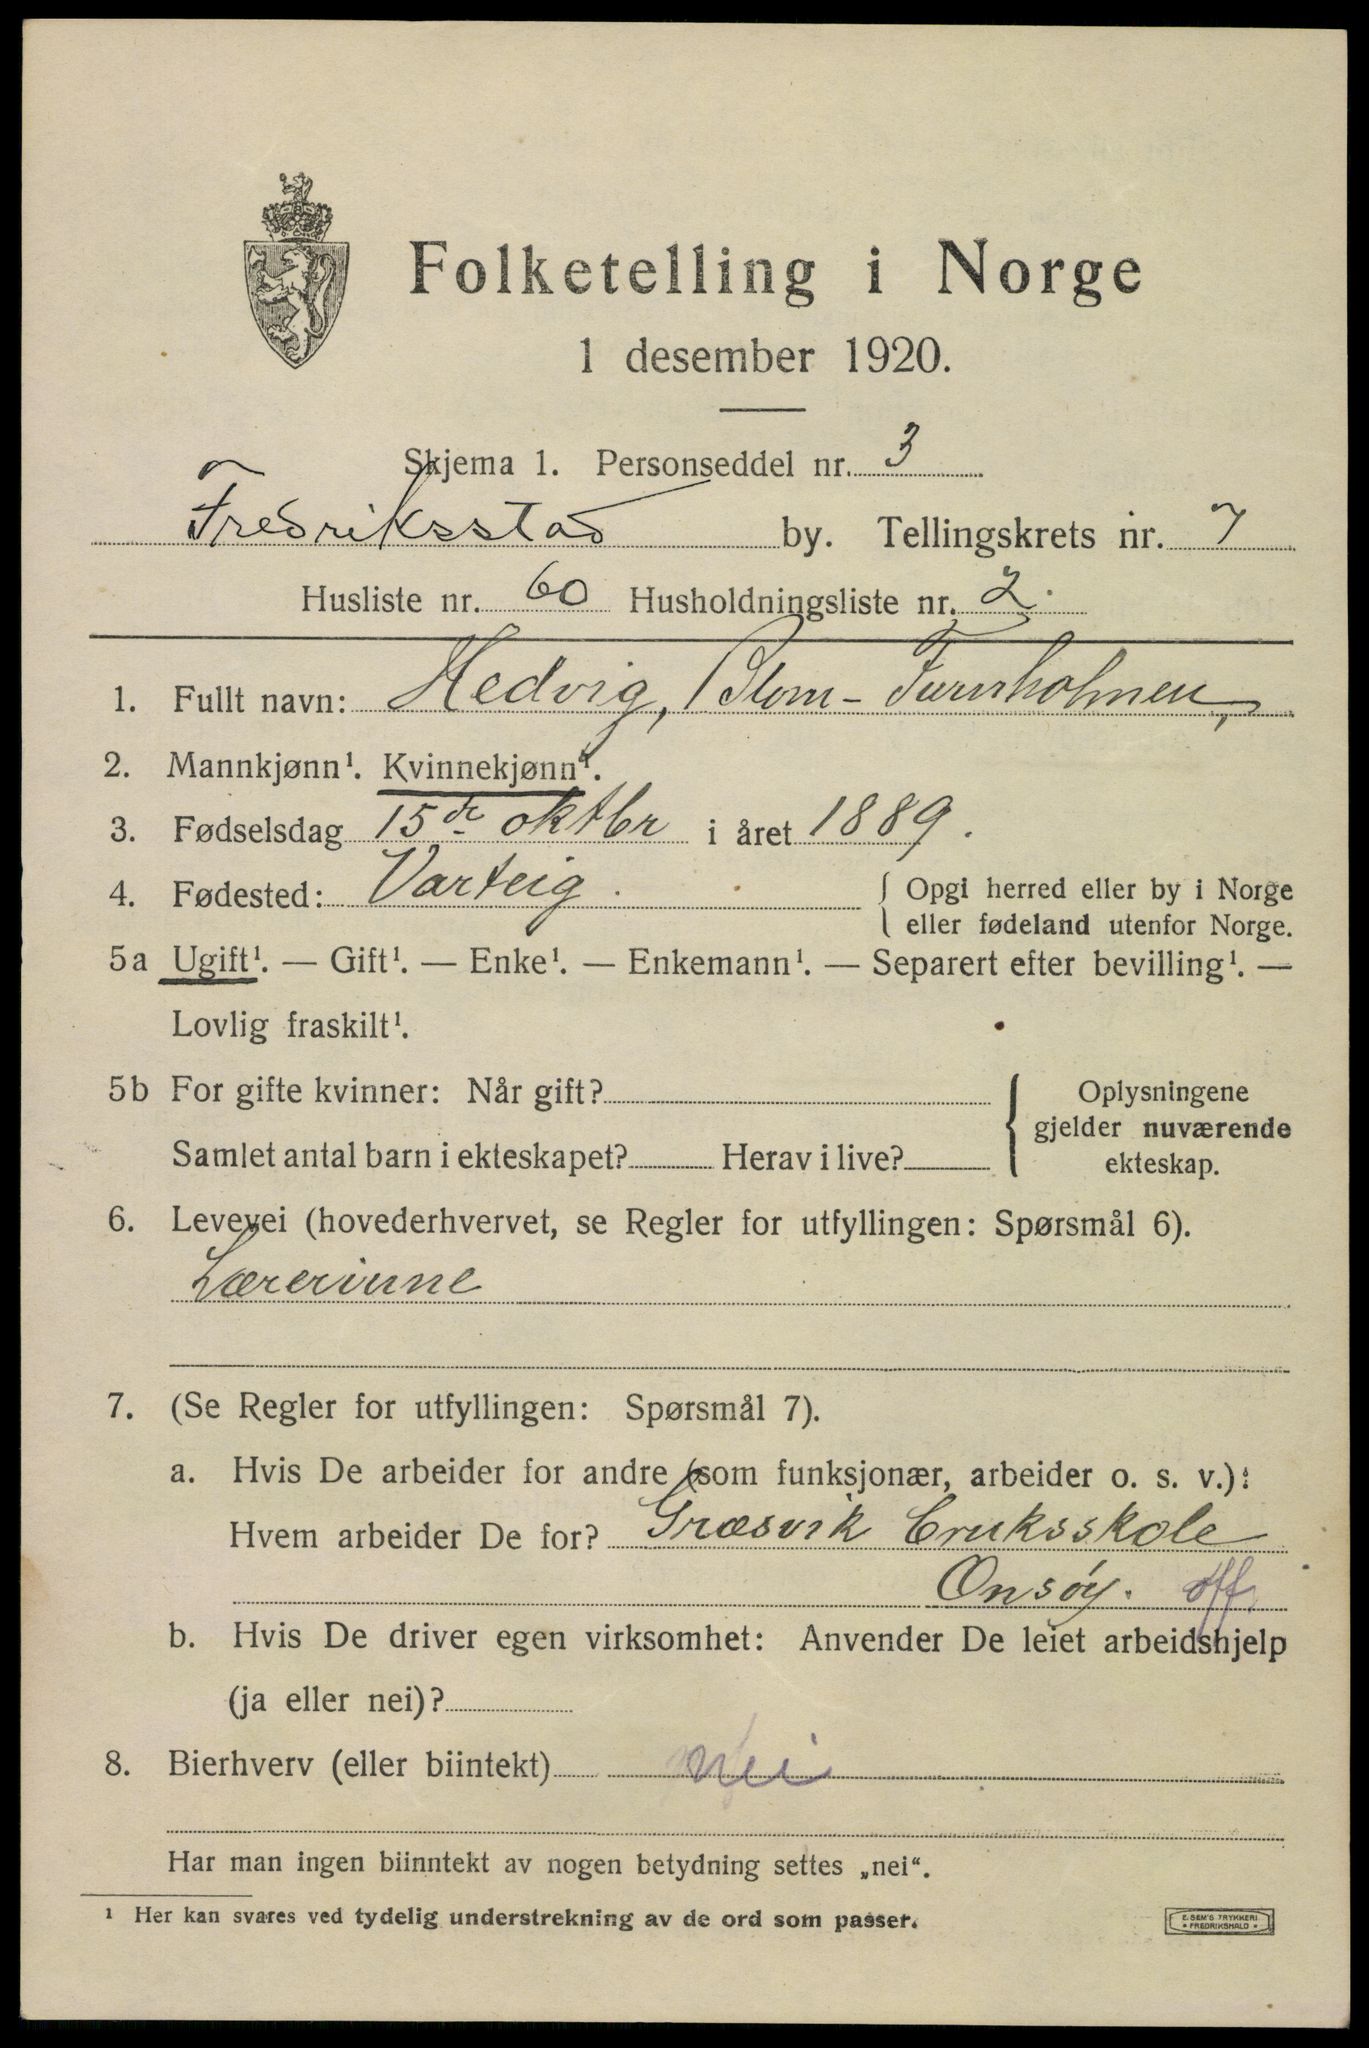 Folketelling i Norge
1 desember 1920.
Skjema 1. Personseddel nr. 3
Fredriksstad by. Tellingskrets nr. 7
Husliste nr. 60 Husholdningsliste nr. 2.
1. Fullt navn: Hedvig, Blom-Furuholmen,
2. Mannkjønn¹. Kvinnekjønn¹.
3. Fødselsdag 15de oktbr i året 1889.
4. Fødested: Varteig. { Opgi herred eller by i Norge
eller fødeland utenfor Norge.
5a Ugift¹. — Gift¹. — Enke¹. — Enkemann¹. — Separert efter bevilling¹. —
Lovlig fraskilt¹.
5b For gifte kvinner: Når gift? { Oplysningene
gjelder nuværende
Samlet antal barn i ekteskapet? Herav i live? ekteskap.
6. Levevei (hovederhvervet, se Regler for utfyllingen: Spørsmål 6).
Lærerinne
7. (Se Regler for utfyllingen: Spørsmål 7).
a. Hvis De arbeider for andre (som funksjonær, arbeider o. s. v.):
Hvem arbeider De for? Græsvik Bruksskole
Onsøy. off.
b. Hvis De driver egen virksomhet: Anvender De leiet arbeidshjelp
(ja eller nei)?
8. Bierhverv (eller biintekt) nei
Har man ingen biinntekt av nogen betydning settes „nei“.
¹ Her kan svares ved tydelig understrekning av de ord som passer.
E. SEM'S TRYKKERI
* FREDRIKSHALD *